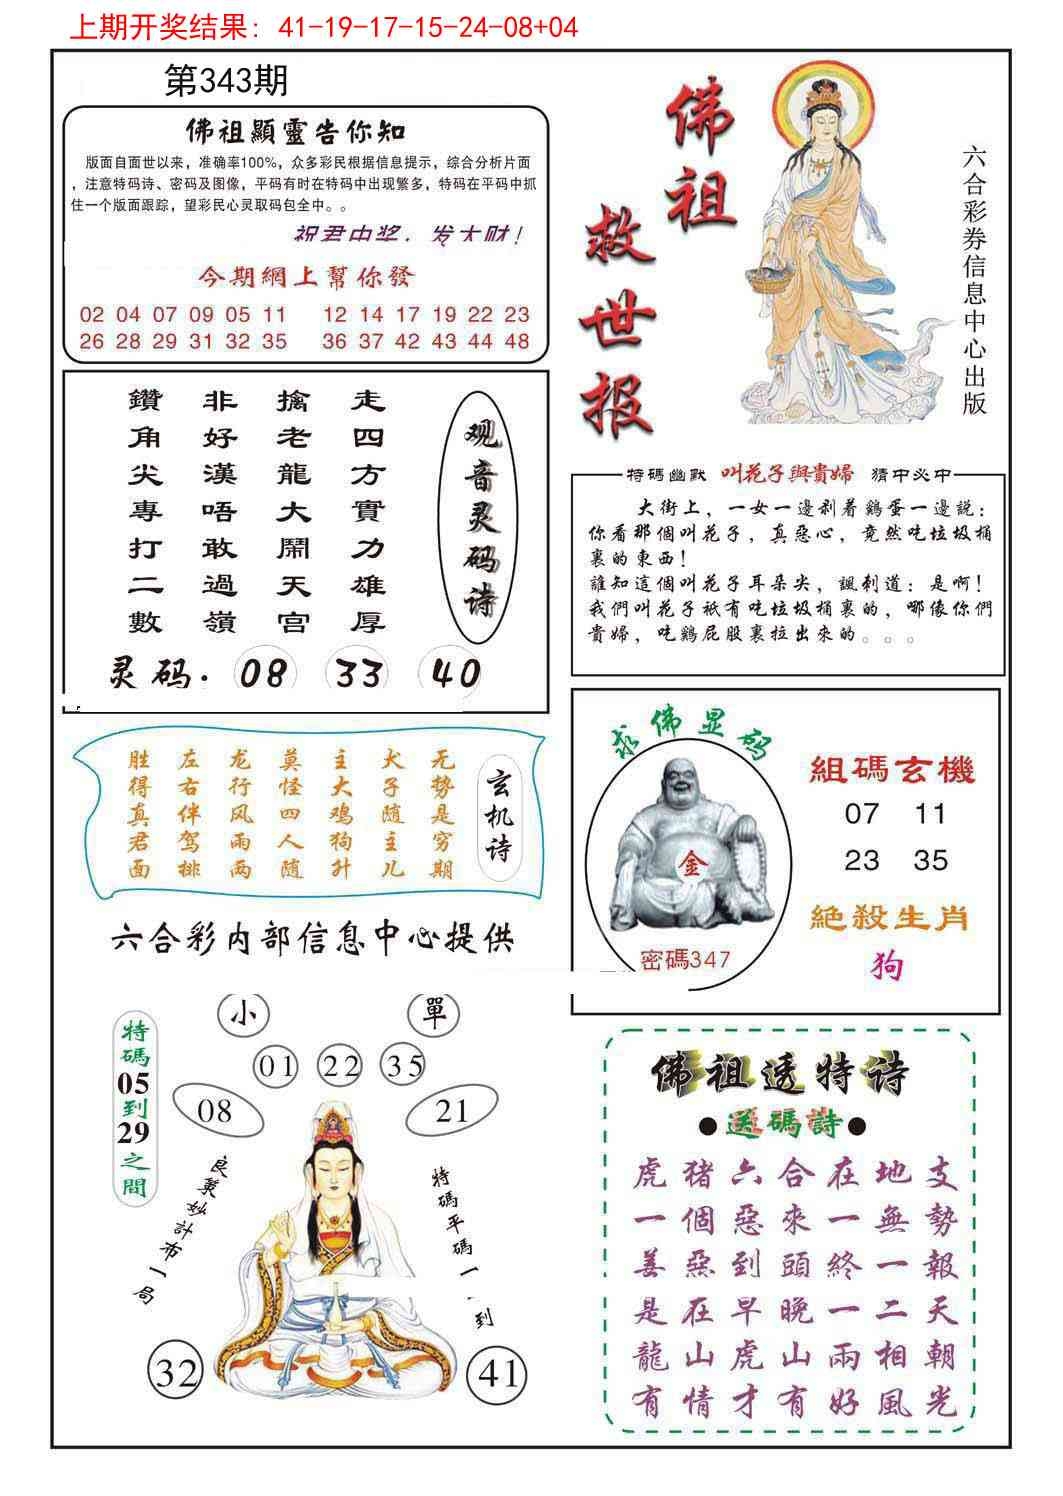 上期开奖结果：41-19-17-15-24-08+04
第343期
佛祖顯靈告你知
版面自面世以来，准确率100%，众多彩民根据信息提示，综合分析片面
，注意特码诗、密码及图像，平码有时在特码中出现繁多，特码在平码中抓
住一个版面跟踪，望彩民心灵取码包全中。。
祝君中奖，发大财！
今期網上幫你發
02 04 07 09 05 11 12 14 17 19 22 23
26 28 29 31 32 35 36 37 42 43 44 48
佛祖
救世报
六合彩券信息中心出版
观音灵码诗
走四方實力雄厚
擒老龍大鬧天宫
非好漢唔敢過嶺
鑽角尖專打二數
灵码：08 33 40
特碼幽默 叫花子與貴婦 猜中必中
大街上，一女一邊剥着鷄蛋一邊説：
你看那個叫花子，真惡心，竟然吃垃圾桶
裏的東西！
誰知這個叫花子耳朵尖，諷刺道：是啊！
我們叫花子衹有吃垃圾桶裏的，哪像你們
貴婦，吃鷄屁股裏拉出來的。。。
玄机诗
无势是穷期
犬子随主儿
主大鸡狗升
莫怪四人随
龙行风雨两
左右伴驾排
胜得真君面
六合彩内部信息中心提供
求佛显码
金
密碼347
組碼玄機
07 11
23 35
絶殺生肖
狗
小 單
01 22 35
08 21
特碼05到29之間
良策妙計布一局
特碼平碼一一到
32 41
佛祖透特诗
●送碼詩●
虎猪六合在地支
一個惡來一無勢
善惡到頭終一報
是在早晚一二天
龍山虎山兩相朝
有情才有好風光